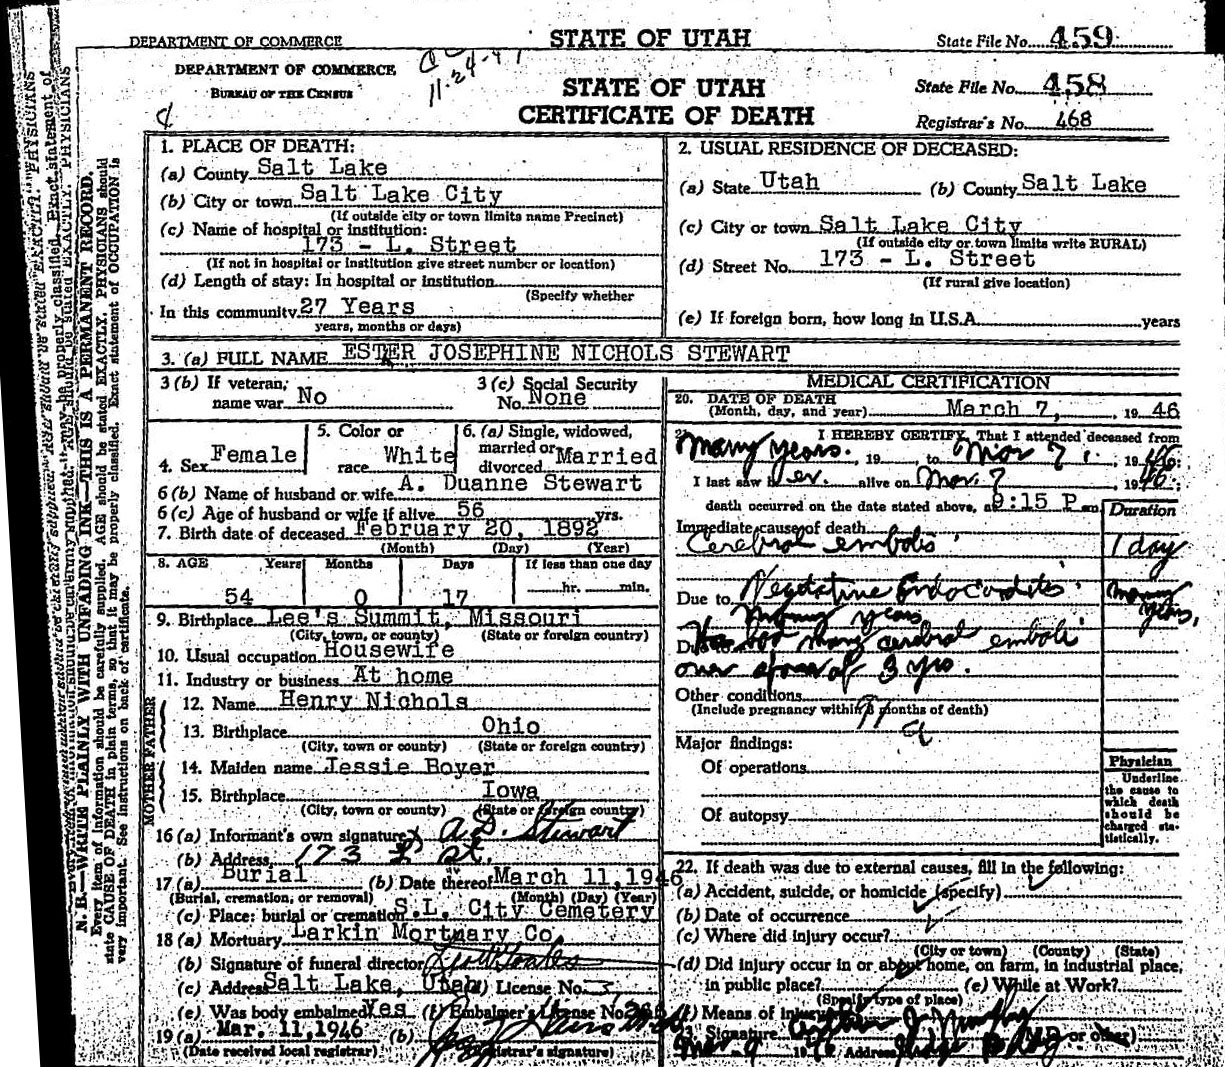 DEPARTMENT OF COMMERCE
STATE OF UTAH
State File No. 459
DEPARTMENT OF COMMERCE
BUREAU OF THE CENSUS
11-24-47
STATE OF UTAH
CERTIFICATE OF DEATH
State File No. 458
Registrar's No. 468
1. PLACE OF DEATH:
(a) County Salt Lake
(b) City or town Salt Lake City
(If outside city or town limits name Precinct)
(c) Name of hospital or institution:
173 - L. Street
(If not in hospital or institution give street number or location)
(d) Length of stay: In hospital or institution
(Specify whether
In this community 27 Years
years, months or days)
2. USUAL RESIDENCE OF DECEASED:
(a) State Utah (b) County Salt Lake
(c) City or town Salt Lake City
(If outside city or town limits write RURAL)
(d) Street No. 173 - L. Street
(If rural give location)
(e) If foreign born, how long in U.S.A. years
3. (a) FULL NAME ESTER JOSEPHINE NICHOLS STEWART
3 (b) If veteran, name war No
3 (c) Social Security No. None
4. Sex Female
5. Color or race White
6. (a) Single, widowed, married or divorced Married
6 (b) Name of husband or wife A. Duanne Stewart
6 (c) Age of husband or wife if alive 56 yrs.
7. Birth date of deceased February 20, 1892
(Month) (Day) (Year)
8. AGE Years Months Days If less than one day
54 0 17 hr. min.
9. Birthplace Lee's Summit, Missouri
(City, town, or county) (State or foreign country)
10. Usual occupation Housewife
11. Industry or business At home
FATHER
12. Name Henry Nichols
13. Birthplace Ohio
(City, town or county) (State or foreign country)
MOTHER
14. Maiden name Jessie Boyer
15. Birthplace Iowa
(City, town or county) (State or foreign country)
16 (a) Informant's own signature A.D. Stewart
(b) Address 173 L St.
17 (a) Burial (b) Date thereof March 11, 1946
(Burial, cremation, or removal) (Month) (Day) (Year)
(c) Place: burial or cremation S.L. City Cemetery
18 (a) Mortuary Larkin Mortuary Co
(b) Signature of funeral director
(c) Address Salt Lake, Utah (d) License No.
(e) Was body embalmed Yes (f) Embalmer's License No.
19 (a) Mar. 11, 1946 (b)
(Date received local registrar) (Registrar's signature)
MEDICAL CERTIFICATION
20. DATE OF DEATH
(Month, day, and year) March 7, 19 46
21. I HEREBY CERTIFY, That I attended deceased from
Many years. 19 to Mar 7, 1946;
I last saw her alive on Mar. 7 1946;
death occurred on the date stated above, at 9:15 P m
Duration
Immediate cause of death
Cerebral embolis 1 day
Due to Vegetative Endocarditis many years.
Many years
Due to Has had many cerebral emboli
over a period of 3 yrs.
Other conditions
(Include pregnancy within 3 months of death)
Major findings:
Of operations
Of autopsy
Physician
Underline the cause to which death should be charged statistically.
22. If death was due to external causes, fill in the following:
(a) Accident, suicide, or homicide (specify)
(b) Date of occurrence
(c) Where did injury occur?
(City or town) (County) (State)
(d) Did injury occur in or about home, on farm, in industrial place,
in public place? (e) While at Work?
(Specify type of place)
(f) Means of injury
23. Signature (M.D. or other)
Mar. 9 1946 Address
N. B.—WRITE PLAINLY WITH UNFADING INK—THIS IS A PERMANENT RECORD.
Every item of information should be carefully supplied. AGE should be stated EXACTLY. PHYSICIANS should
state CAUSE OF DEATH in plain terms, so that it may be properly classified. Exact statement of OCCUPATION is
very important. See instructions on back of certificate.